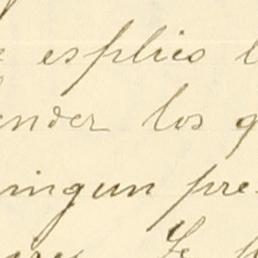 esplico l
ender los q
ningun pre
Ye